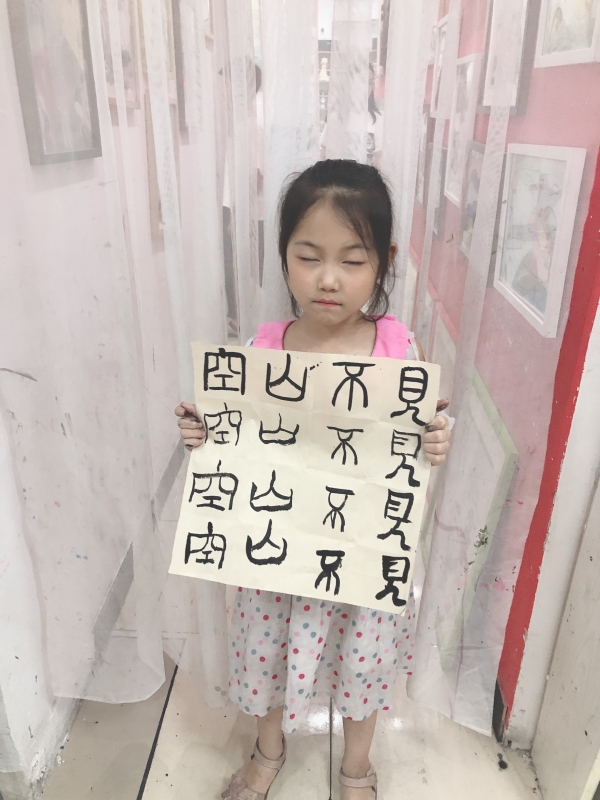 空山不見
空山不見
空山不見
空山不見